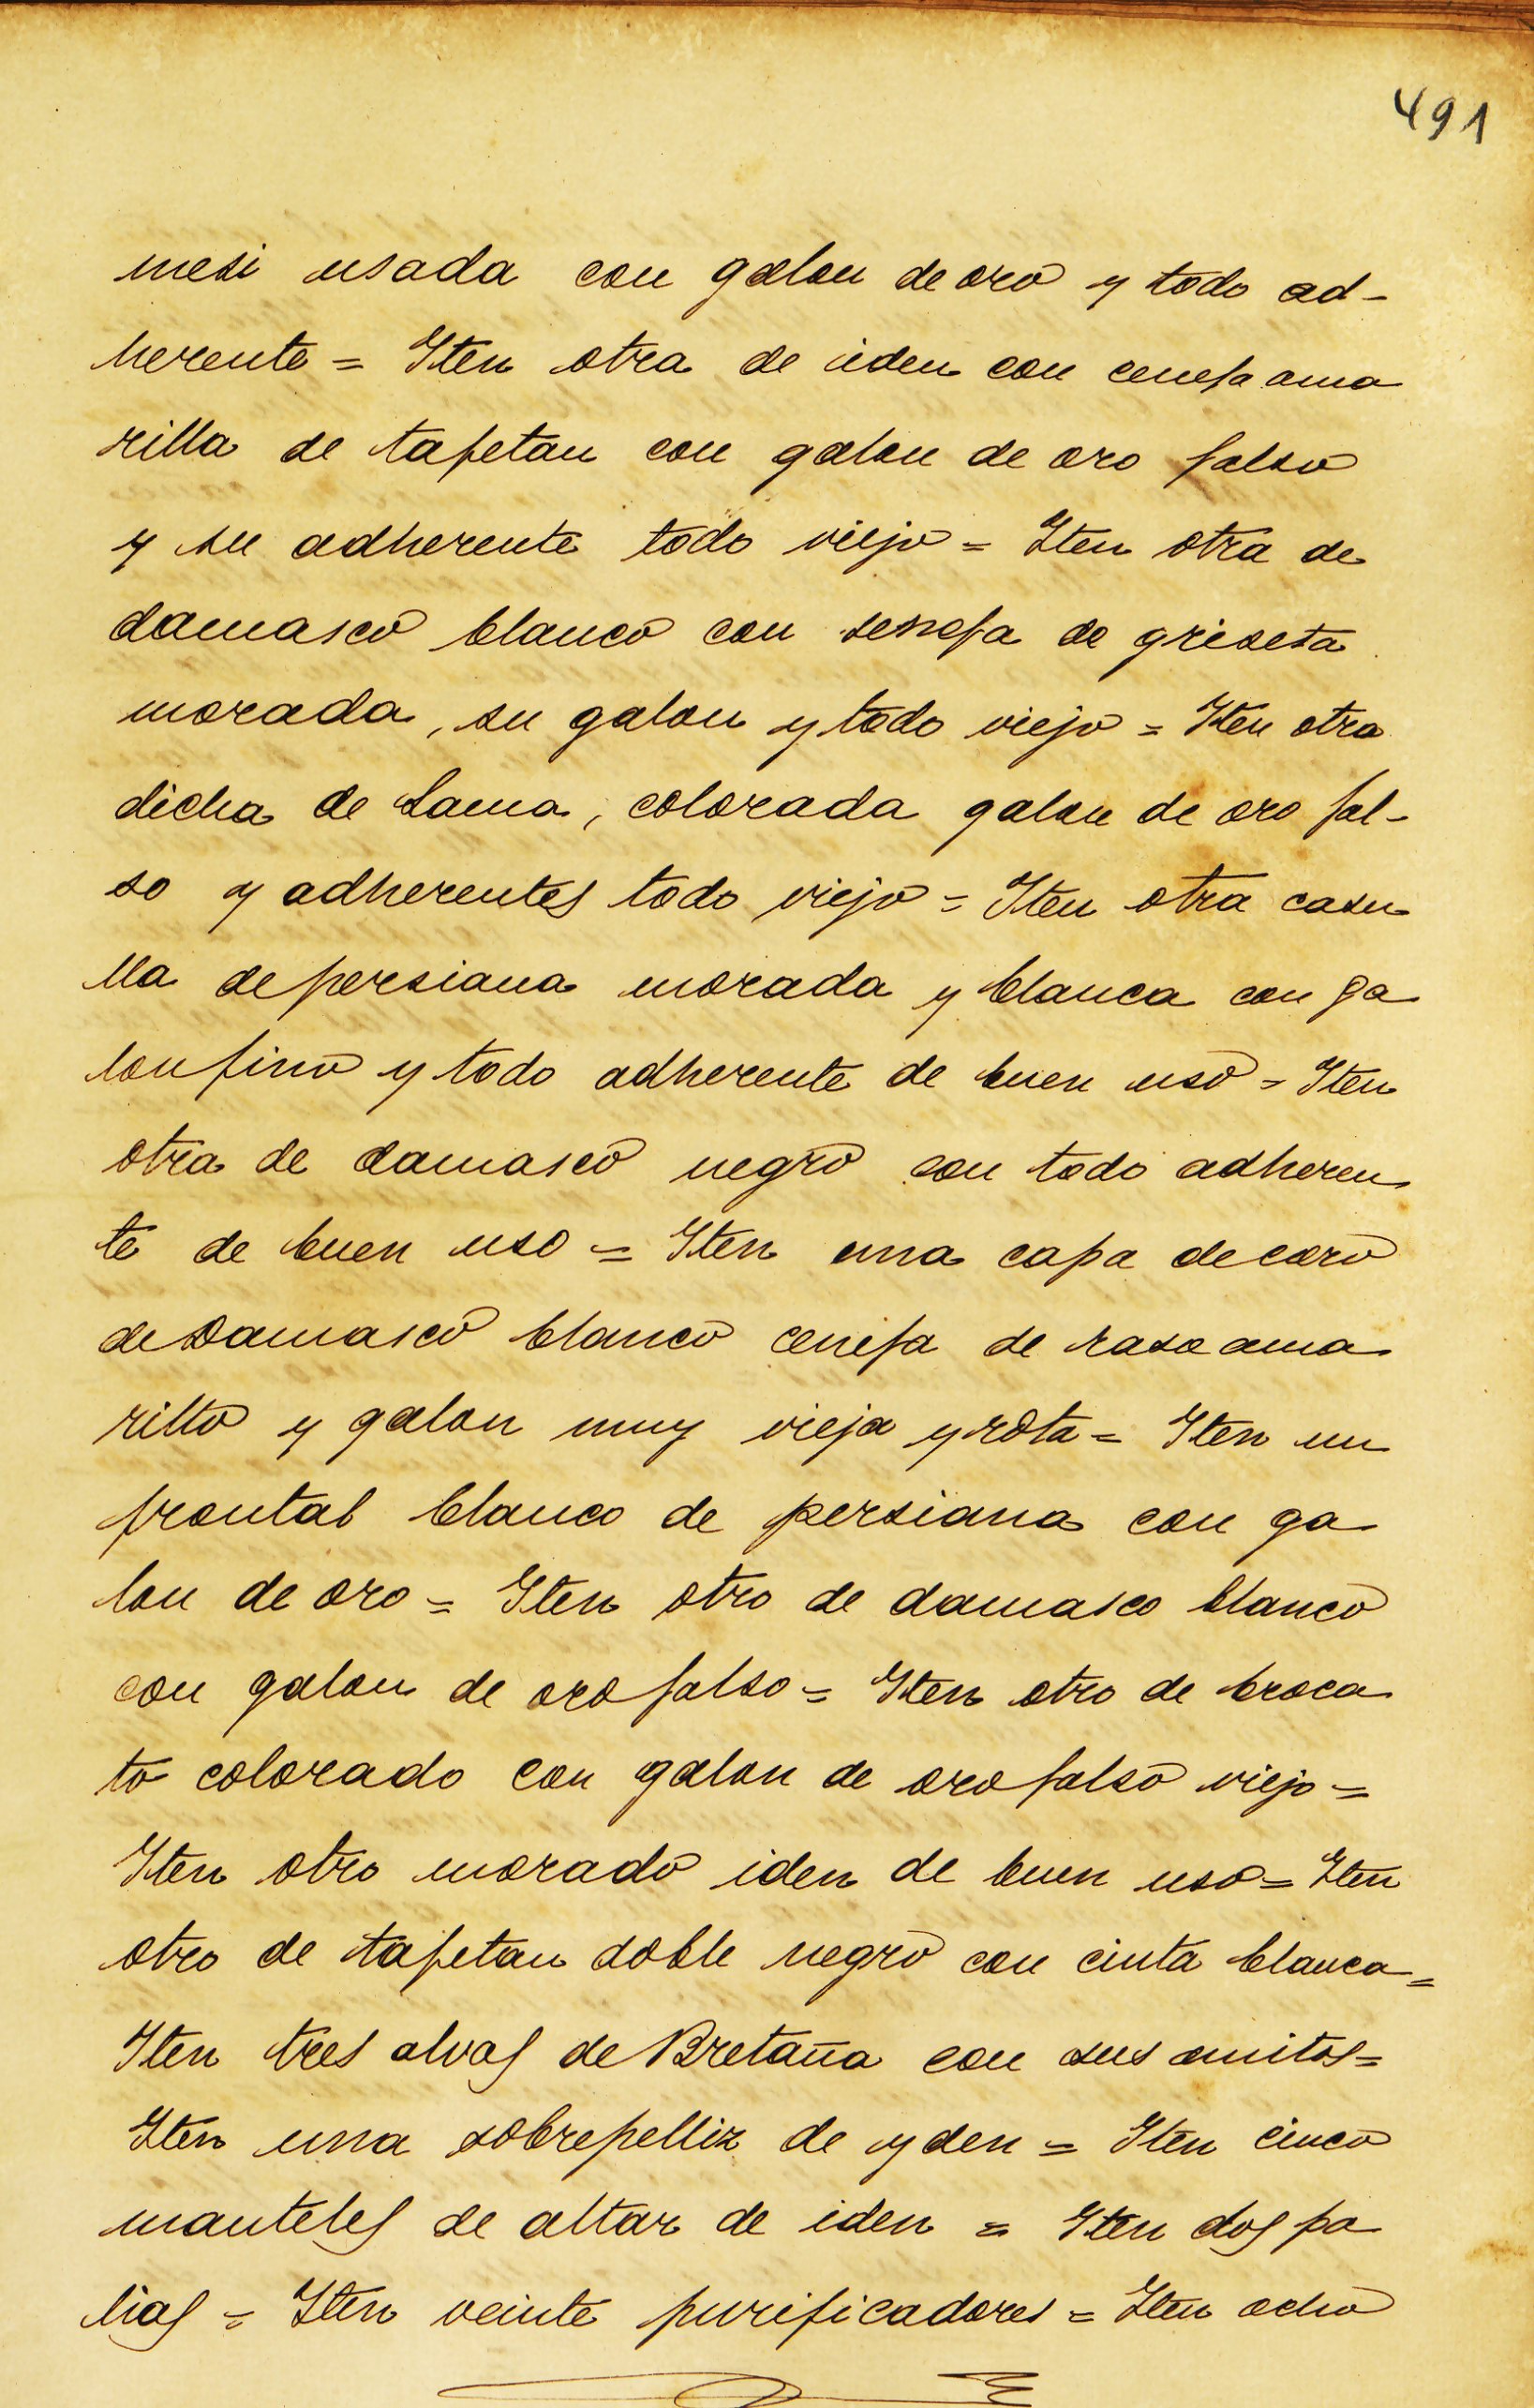 491
mesi usada con galon de oro y todo ad-
herente = Iten otra de iden con cenefa ama
rilla de tafetan con galon de oro falso
y su adherente todo viejo = Iten otra de
damasco blanco con senefa de griseta
morada, su galon y todo viejo = Iten otra
dicha de Lama, colorada galon de oro fal-
so y adherentes todo viejo = Iten otra casu
lla de persiana morada y blanca con ga
lon fino y todo adherente de buen uso = Iten
otra de damasco negro con todo adheren
te de buen uso = Iten una capa de coro
de Damasco blanco cenefa de raso ama
rillo y galon muy vieja y rota = Iten un
frontal blanco de persiana con ga
lon de oro = Iten otro de damasco blanco
con galon de oro falso = Iten otro de broca
to colorado con galon de oro falso viejo =
Iten otro morado iden de buen uso = Iten
otro de tafetan doble negro con cinta blanca =
Iten tres alvas de Bretaña con sus amitos =
Iten una sobrepelliz de yden = Iten cinco
manteles de altar de iden = Iten dos pa
lias = Iten veinte purificadores = Iten ocho